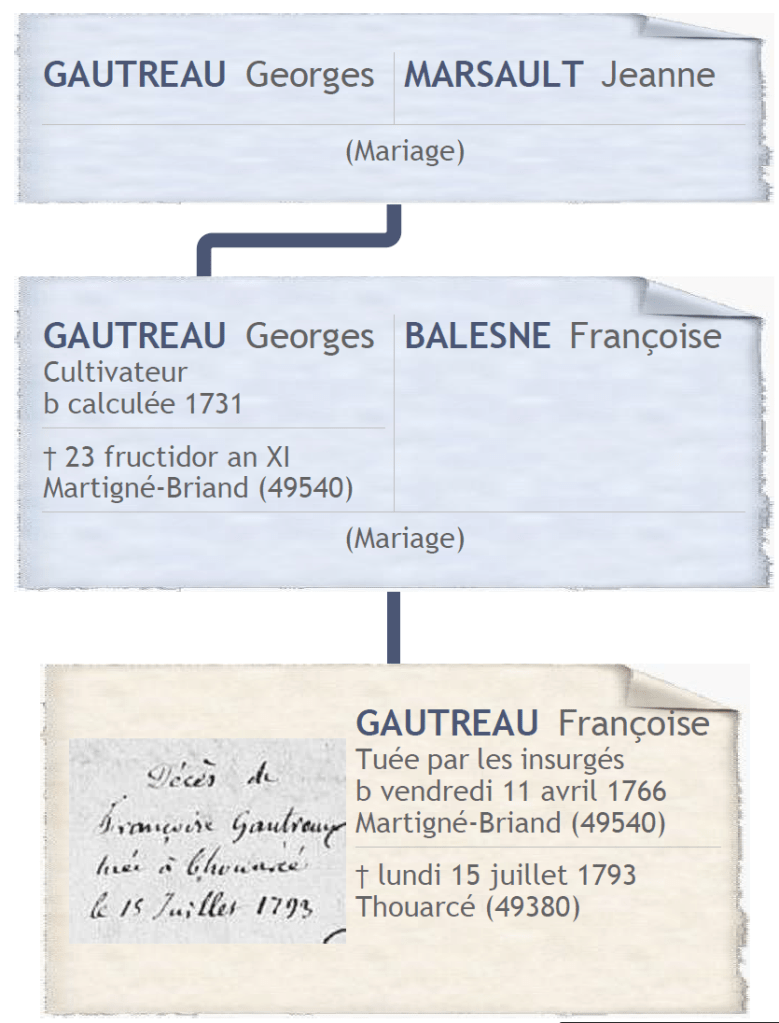 GAUTREAU Georges
MARSAULT Jeanne
(Mariage)
GAUTREAU Georges
Cultivateur
b calculée 1731
† 23 fructidor an XI
Martigné-Briand (49540)
BALESNE Françoise
(Mariage)
Décès de
Françoise Gautreau
tuée à Thouarcé
le 15 Juillet 1793
GAUTREAU Françoise
Tuée par les insurgés
b vendredi 11 avril 1766
Martigné-Briand (49540)
† lundi 15 juillet 1793
Thouarcé (49380)